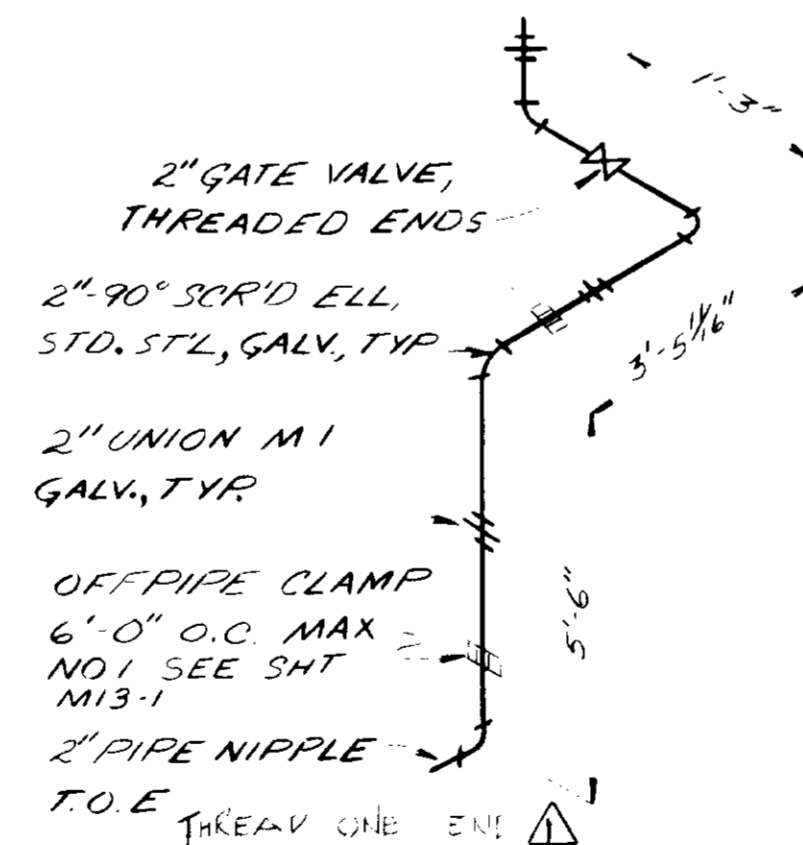 1'-3"
2" GATE VALVE,
THREADED ENDS
2"-90° SCR'D ELL,
STD. ST'L, GALV., TYP
3'-5 1/16"
2" UNION M I
GALV., TYP.
OFFPIPE CLAMP
6'-0" O.C. MAX
NO 1 SEE SHT
M13-1
5'-6"
2" PIPE NIPPLE
T.O.E
THREAD ONE END
1